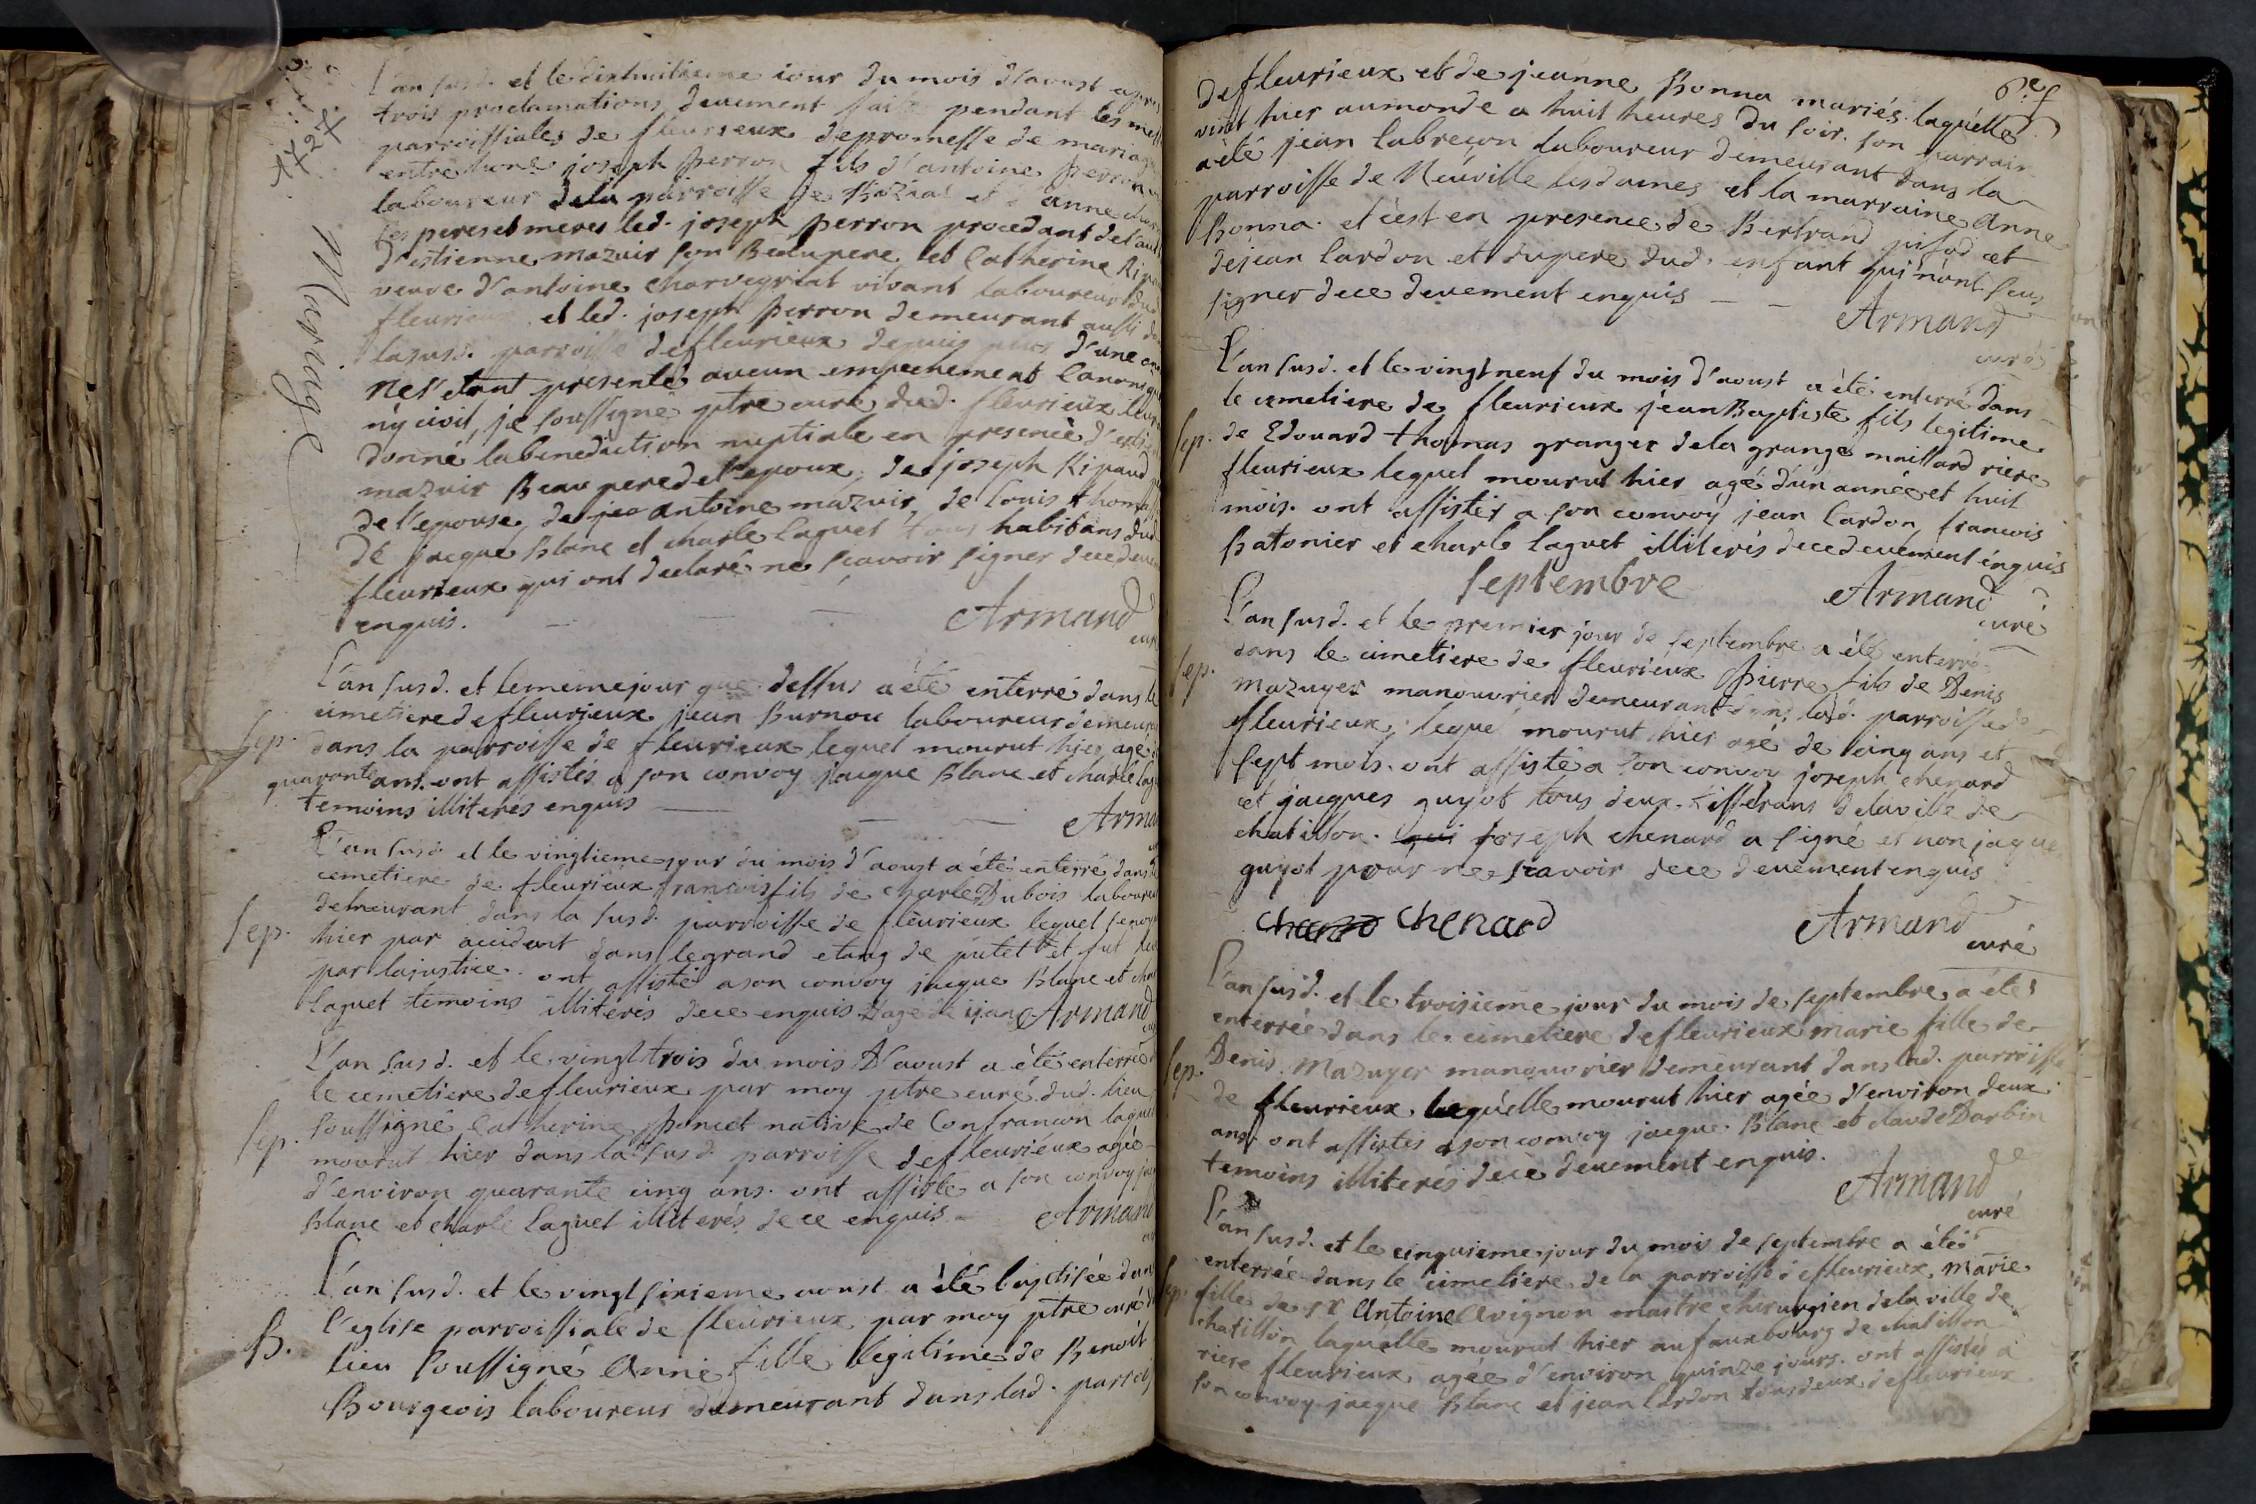 1727
Mariage
L'an susd. et le dixhuitieme iour du mois d'aoust apres
trois proclamations deuement faite pendant les mess
parroissiales de fleurieux de promesse de mariage
entre hone joseph perron fils d'antoine perron
laboureur dela parroisse de et d'anne
ses peres et meres led. joseph perron procedant de l'aut
d'estienne mazuir son Beaupere et Catherine Ripa
veuve d'antoine charvegriat vivant laboureur dud
fleurieux et led. joseph perron demeurant aussi da
lasusd. parroisse de fleurieux depuis plus d'une an
ne s'etant presenté aucun empechement Canoniq
ny civil, je soussigné ptre curé dud. fleurieux leur
donné la benediction nuptiale en presence d'estien
mazuir Beaupere de l'epoux, de joseph Ripaud
de l'epouse, de antoine mazuir, de louis thomass
de jacque Blanc et charle laguet tous habitans dud
fleurieux qui ont declaré ne scavoir signer de ce deue
enquis. Armand
curé
L'an susd. et le meme jour que dessus a été enterré dans le
Sep. cimetiere de fleurieux jean Burnou laboureur demeura
dans la parroisse de fleurieux lequel mourut hier agé
quarante ans. ont assistés a son convoy jacque Blanc et charle lag
temoins illiterés enquis Arma
L'an susd et le vingtieme jour du mois d'aoust a été enterré dans
cemetiere de fleurieux francois fils de charle Dubois laboureu
Sep. demeurant dans la susd. parroisse de fleurieux lequel se noya
hier par accident dans le grand etang de putet et fut
par la justice. ont assisté a son convoy jacque Blanc et char
laguet temoins illiterés de ce enquis agé de Armand
L'an susd. et le vingt trois du mois D'aoust a été enterrée
le cemetiere de fleurieux par moy ptre curé dud. lieu
Sep. soussigné Catherine poncet native de Confrancon laquel
mourut hier dans la susd. parroisse de fleurieux agée
d'environ quarante cinq ans. ont assisté a son convoy ja
Blanc et charle laguet illiterés de ce enquis Armand
L'an susd. et le vingt sixieme aoust a été baptisée dan
l'eglise parroissiale de fleurieux par moy ptre curé d
B. lieu soussigné Anne fille legitime de Benoit
Bourgeois laboureur demeurant dans lad. parrois
de fleurieux et de jeanne Bonna mariés. laquelle
vint hier aumonde a huit heures du soir. son parrain
a été jean labreçon laboureur demeurant dans la
parroisse de Neuville les dames et la marraine Anne
Bonna. et c'est en presence de Bertrand pisod et
de jean lardon et dupere dud. enfant qui n'ont sceu
signer de ce deuement enquis Armand
curé
L'an susd. et le vingt neuf du mois d'aoust a été enterré dans
le cemetiere de fleurieux jean Baptiste fils legitime
Sep. de Edouard thomas granger dela grange maillard riere
fleurieux lequel mourut hier agé d'un année et huit
mois. ont assistés a son convoy jean lardon, francois
Batonier et charle laguet illiterés de ce deuement enquis
Septembre Armand
curé
L'an susd. et le premier jour de septembre a été enterré
Sep. dans le cimetiere de fleurieux Pierre fils de Denis
Mazuyer manouvrier demeurant dans lad. parroisse de
fleurieux, lequel mourut hier agé de cinq ans et
sept mois. ont assisté a son convoy joseph chenard
et jacques guyot tous deux tisserans de la ville de
chatillon. qui joseph chenard a signé et non jaque
guyot pour ne scavoir de ce deuement enquis
chenard Armand
curé
L'an susd. et le troisieme jour du mois de septembre a été
enterrée dans le cimetiere de fleurieux marie fille de
Sep. Denis Mazuyer manouvrier demeurant dans lad. parroisse
de fleurieux. laquelle mourut hier agée d'environ deux
ans, ont assistés a son convoy jacque Blanc et claude Darbin
temoins illiterés de ce deuement enquis.
Armand
curé
L'an susd. et le cinquieme jour du mois de septembre a été
enterrée dans le cimetiere de la parroisse de fleurieux, Marie
Sep. fille de sr Antoine Avignon maitre chirurgien dela ville de
chatillon laquelle mourut hier au fauxbourg de chatillon
riere fleurieux agée d'environ quinze jours. ont assistés a
son convoy jacque Blanc et jean lardon tous deux de fleurieux